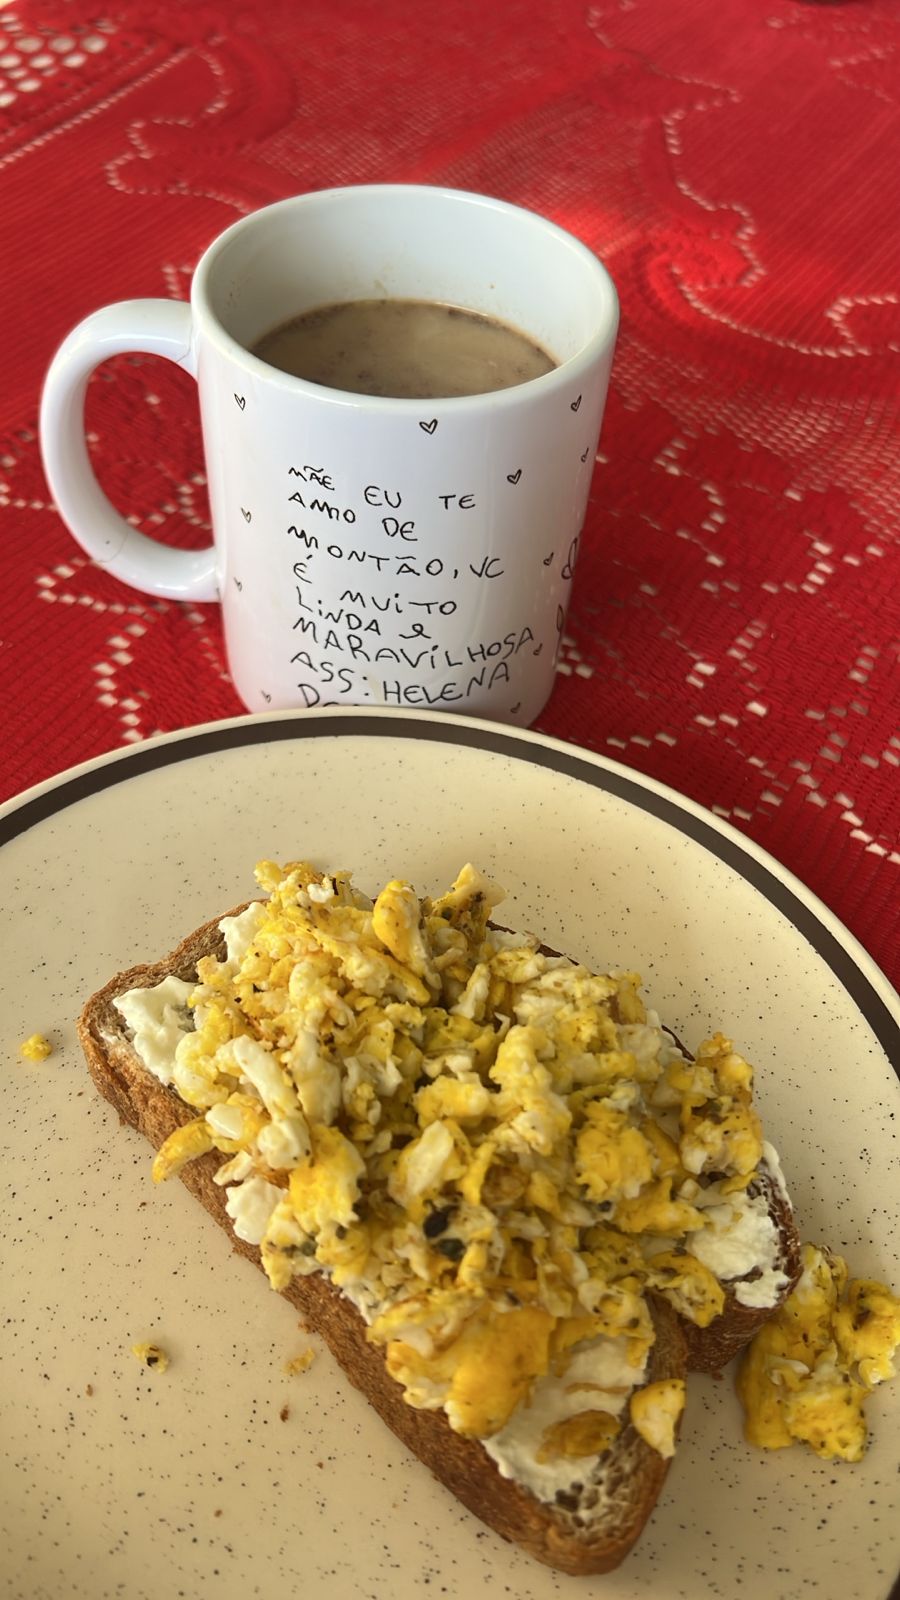 MÃE EU TE
AMO DE
MONTÃO, VC
É MUiTO
LiNDA e
MARAViLHOSA
ASS: HELENA